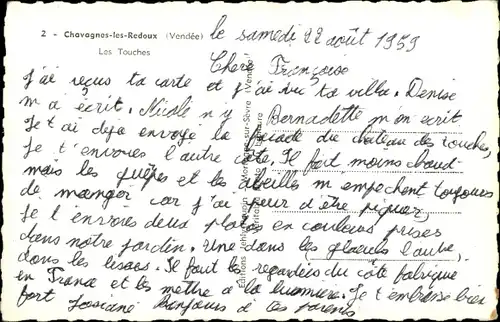 2 - Chavagnes-les-Redoux (Vendée)
Les Touches
le samedi 22 août 1959
Chère Françoise
J'ai reçus ta carte et j'ai vu ta villa. Denise
m'a écrit. Nicole n'y Bernadette m'on écrit
Je t'ai déja envoyé la facade du chateau des touches,
Je t'envoies l'autre côté. Il fait moins chaud
mais les guêpes et les abeilles m'empechent toujours
de manger car j'ai peur d'être piquer
Je t'envoies deux photos en couleurs prises
dans notre jardin. Une dans les glaieuls l'autre,
dans les lisses. Il faut les regardés du côté fabriqué
en France et les mettre a la lummière. Je t'embrasse bien
fort Josiane bonjours a tes parents
Editions Mortagne-sur-Sèvre (Vendée)